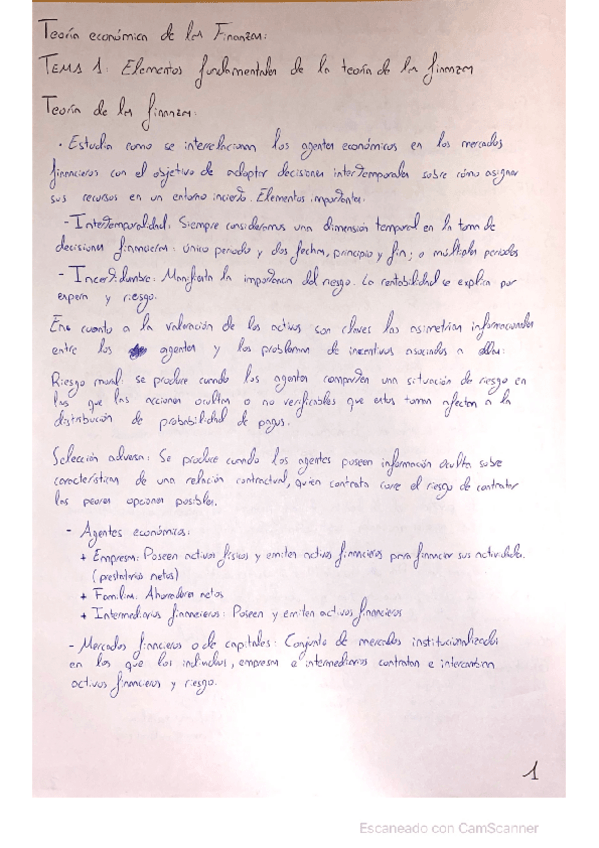 Teoría económica de las Finanzas:
TEMA 1: Elementos fundamentales de la teoría de las finanzas
Teoría de las finanzas:
· Estudia como se interrelacionan los agentes económicos en los mercados
financieros con el objetivo de adoptar decisiones intertemporales sobre cómo asignar
sus recursos en un entorno incierto. Elementos importantes:
- Intertemporalidad: Siempre consideramos una dimensión temporal en la toma de
decisiones financieras: único periodo y dos fechas, principio y fin; o múltiples periodos
- Incertidumbre: Manifiesta la importancia del riesgo. La rentabilidad se explica por
espera y riesgo.
En cuanto a la valoración de los activos son claves las asimetrías informacionales
entre los agentes y los problemas de incentivos asociados a ellas:
Riesgo moral: se produce cuando los agentes comparten una situación de riesgo en
las que las acciones ocultas o no verificables que estos toman afectan a la
distribución de probabilidad de pagos.
Selección adversa: Se produce cuando los agentes poseen información oculta sobre
características de una relación contractual, quien contrata corre el riesgo de contratar
las peores opciones posibles.
- Agentes económicos:
+ Empresas: Poseen activos físicos y emiten activos financieros para financiar sus actividades.
(prestatarios netos)
+ Familias: Ahorradores netos
+ Intermediarios financieros: Poseen y emiten activos financieros
- Mercados financieros o de capitales: Conjunto de mercados institucionalizados
en los que los individuos, empresas e intermediarios contratan e intercambian
activos financieros y riesgo.
1
Escaneado con CamScanner